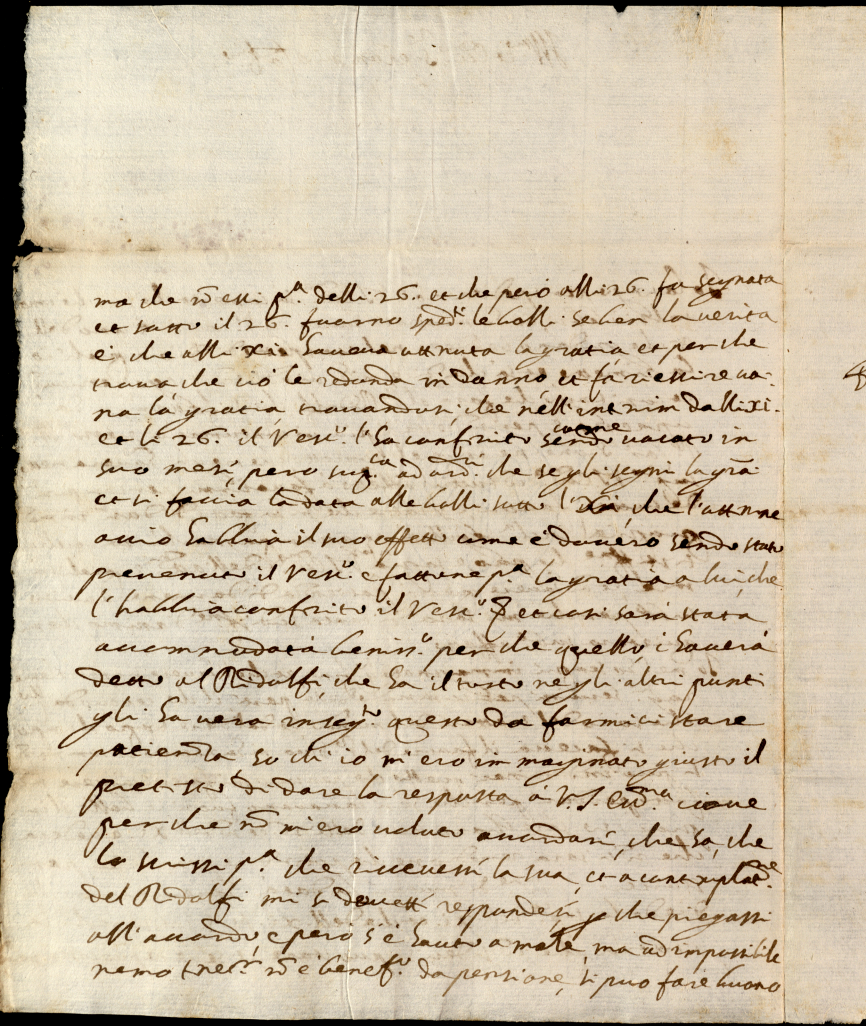 ma che nō essi p.ª delli 26. et che però alli 26. fu segnata
et sotto il 26. furno sped.te le bolle se ben la verità
è che alli xi haveva ottenuta la gratia et perche
trova che ciò le redonda in danno et fa riessire va-
na la gratia trovandosi che nell'interim dalli xi.
et li 26. il Vesc.º l'ha conferito sendo vacato in
suo mese, però che segli segni la grā
et si faccia la data alle bolle sotto l'xi che l'ottenne
acciò habbia il suo effetto come è dovero sendo stato
prevenuto il Vesc.º e fattone p.ª la gratia a lui che
l'habbia conferito il Vesc.º et così sarà stata
accommodata beniss.º perche quello i haverà
detto al Ridolfi che ha il torto negli altri punti
gli haverà questo da farmici stare
patienza so ch'io m'ero immaginato giusto il
pretesto di dare la resposta à V.S. cioue
perche nō m'ero voluto accordare, che sa, che
la scrissi p.ª che ricevessi la sua, et a
del Ridolfi mi si respondesi che piegassi
all'accordo, e però s'è hauto a male, ma ad impossibile
nemo tenet.r nō è benef.º da pensione, si può fare buono